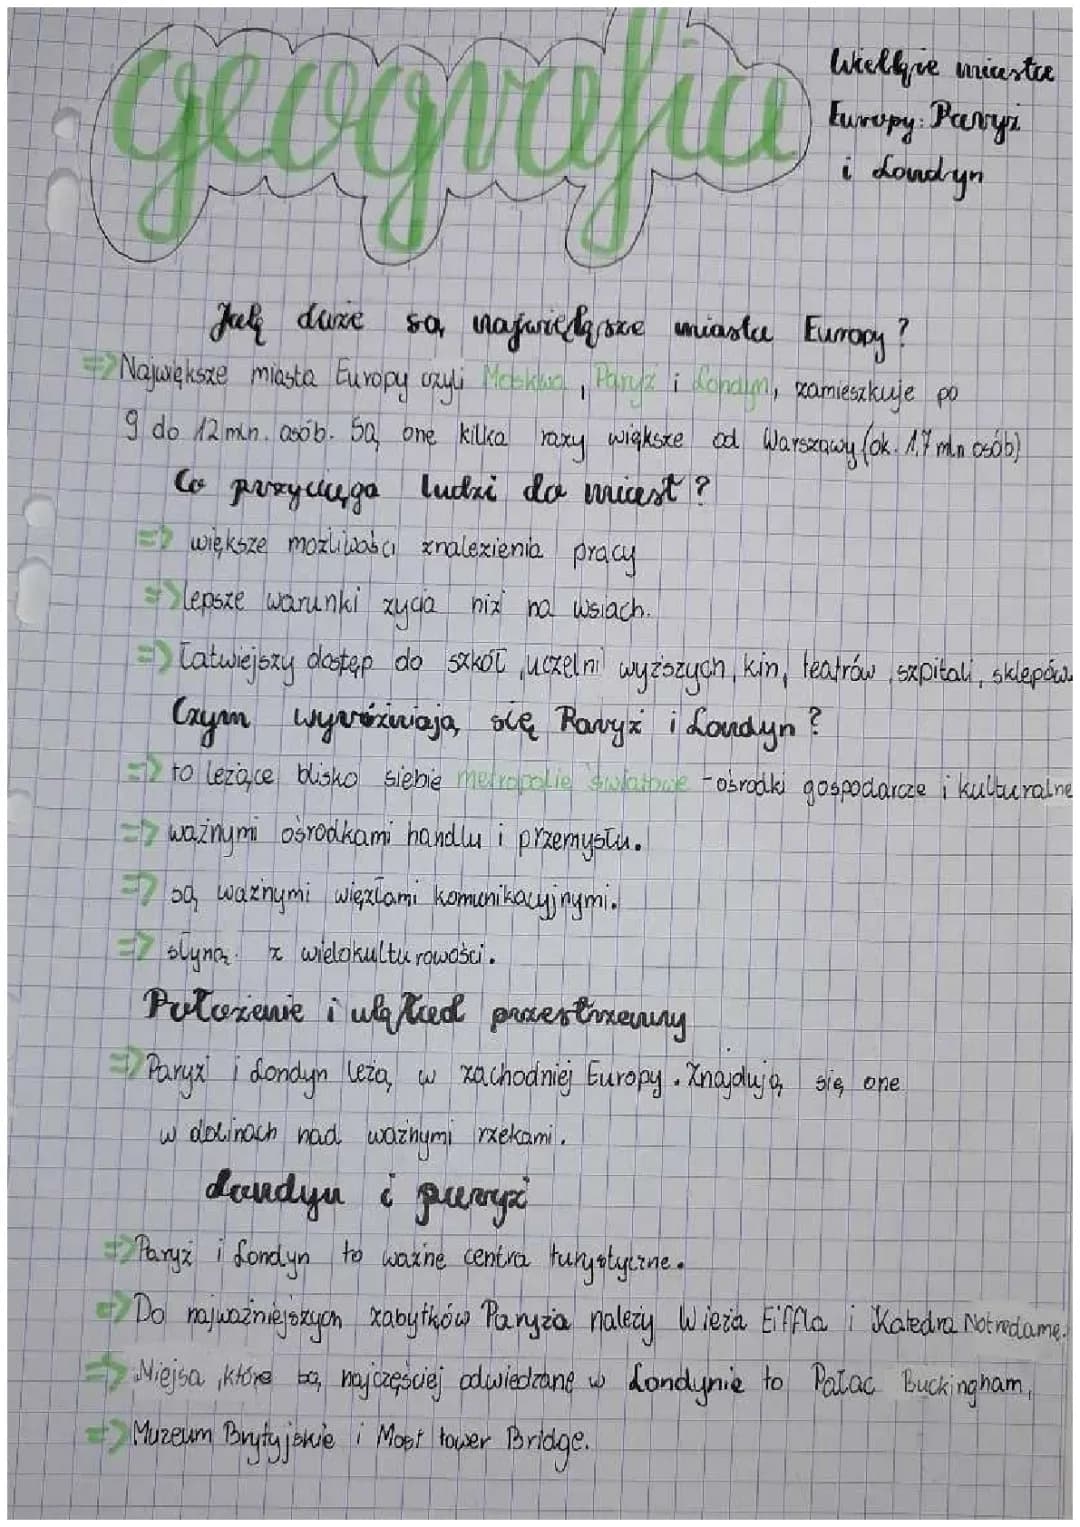 geografia
Wielkie miasta
Europy: Paryż
i Londyn
Jak duże są największe miasta Europy?
=> Największe miasta Europy czyli Moskwa, Paryż i Londyn, zamieszkuje po
9 do 12 mln. osób. Są one kilka razy większe od Warszawy (ok. 1,7 mln osób)
Co przyciąga ludzi do miast?
=> większe możliwości znalezienia pracy
=> lepsze warunki życia niż na wsiach.
=> Łatwiejszy dostęp do szkół, uczelni wyższych, kin, teatrów, szpitali, sklepów.
Czym wyróżniają się Paryż i Londyn?
=> to leżące blisko siebie metropolie światowe - ośrodki gospodarcze i kulturalne
=> ważnymi ośrodkami handlu i przemysłu.
=> są ważnymi węzłami komunikacyjnymi.
=> słyną z wielokulturowości.
Położenie i układ przestrzenny
=> Paryż i Londyn leżą w zachodniej Europy. Znajdują się one
w dolinach nad ważnymi rzekami.
Londyn i paryż
=> Paryż i Londyn to ważne centra turystyczne.
=> Do najważniejszych zabytków Paryża należy Wieża Eiffla i Katedra Notredame.
=> Miejsa, które są najczęściej odwiedzane w Londynie to Pałac Buckingham,
=> Muzeum Brytyjskie i Most tower Bridge.